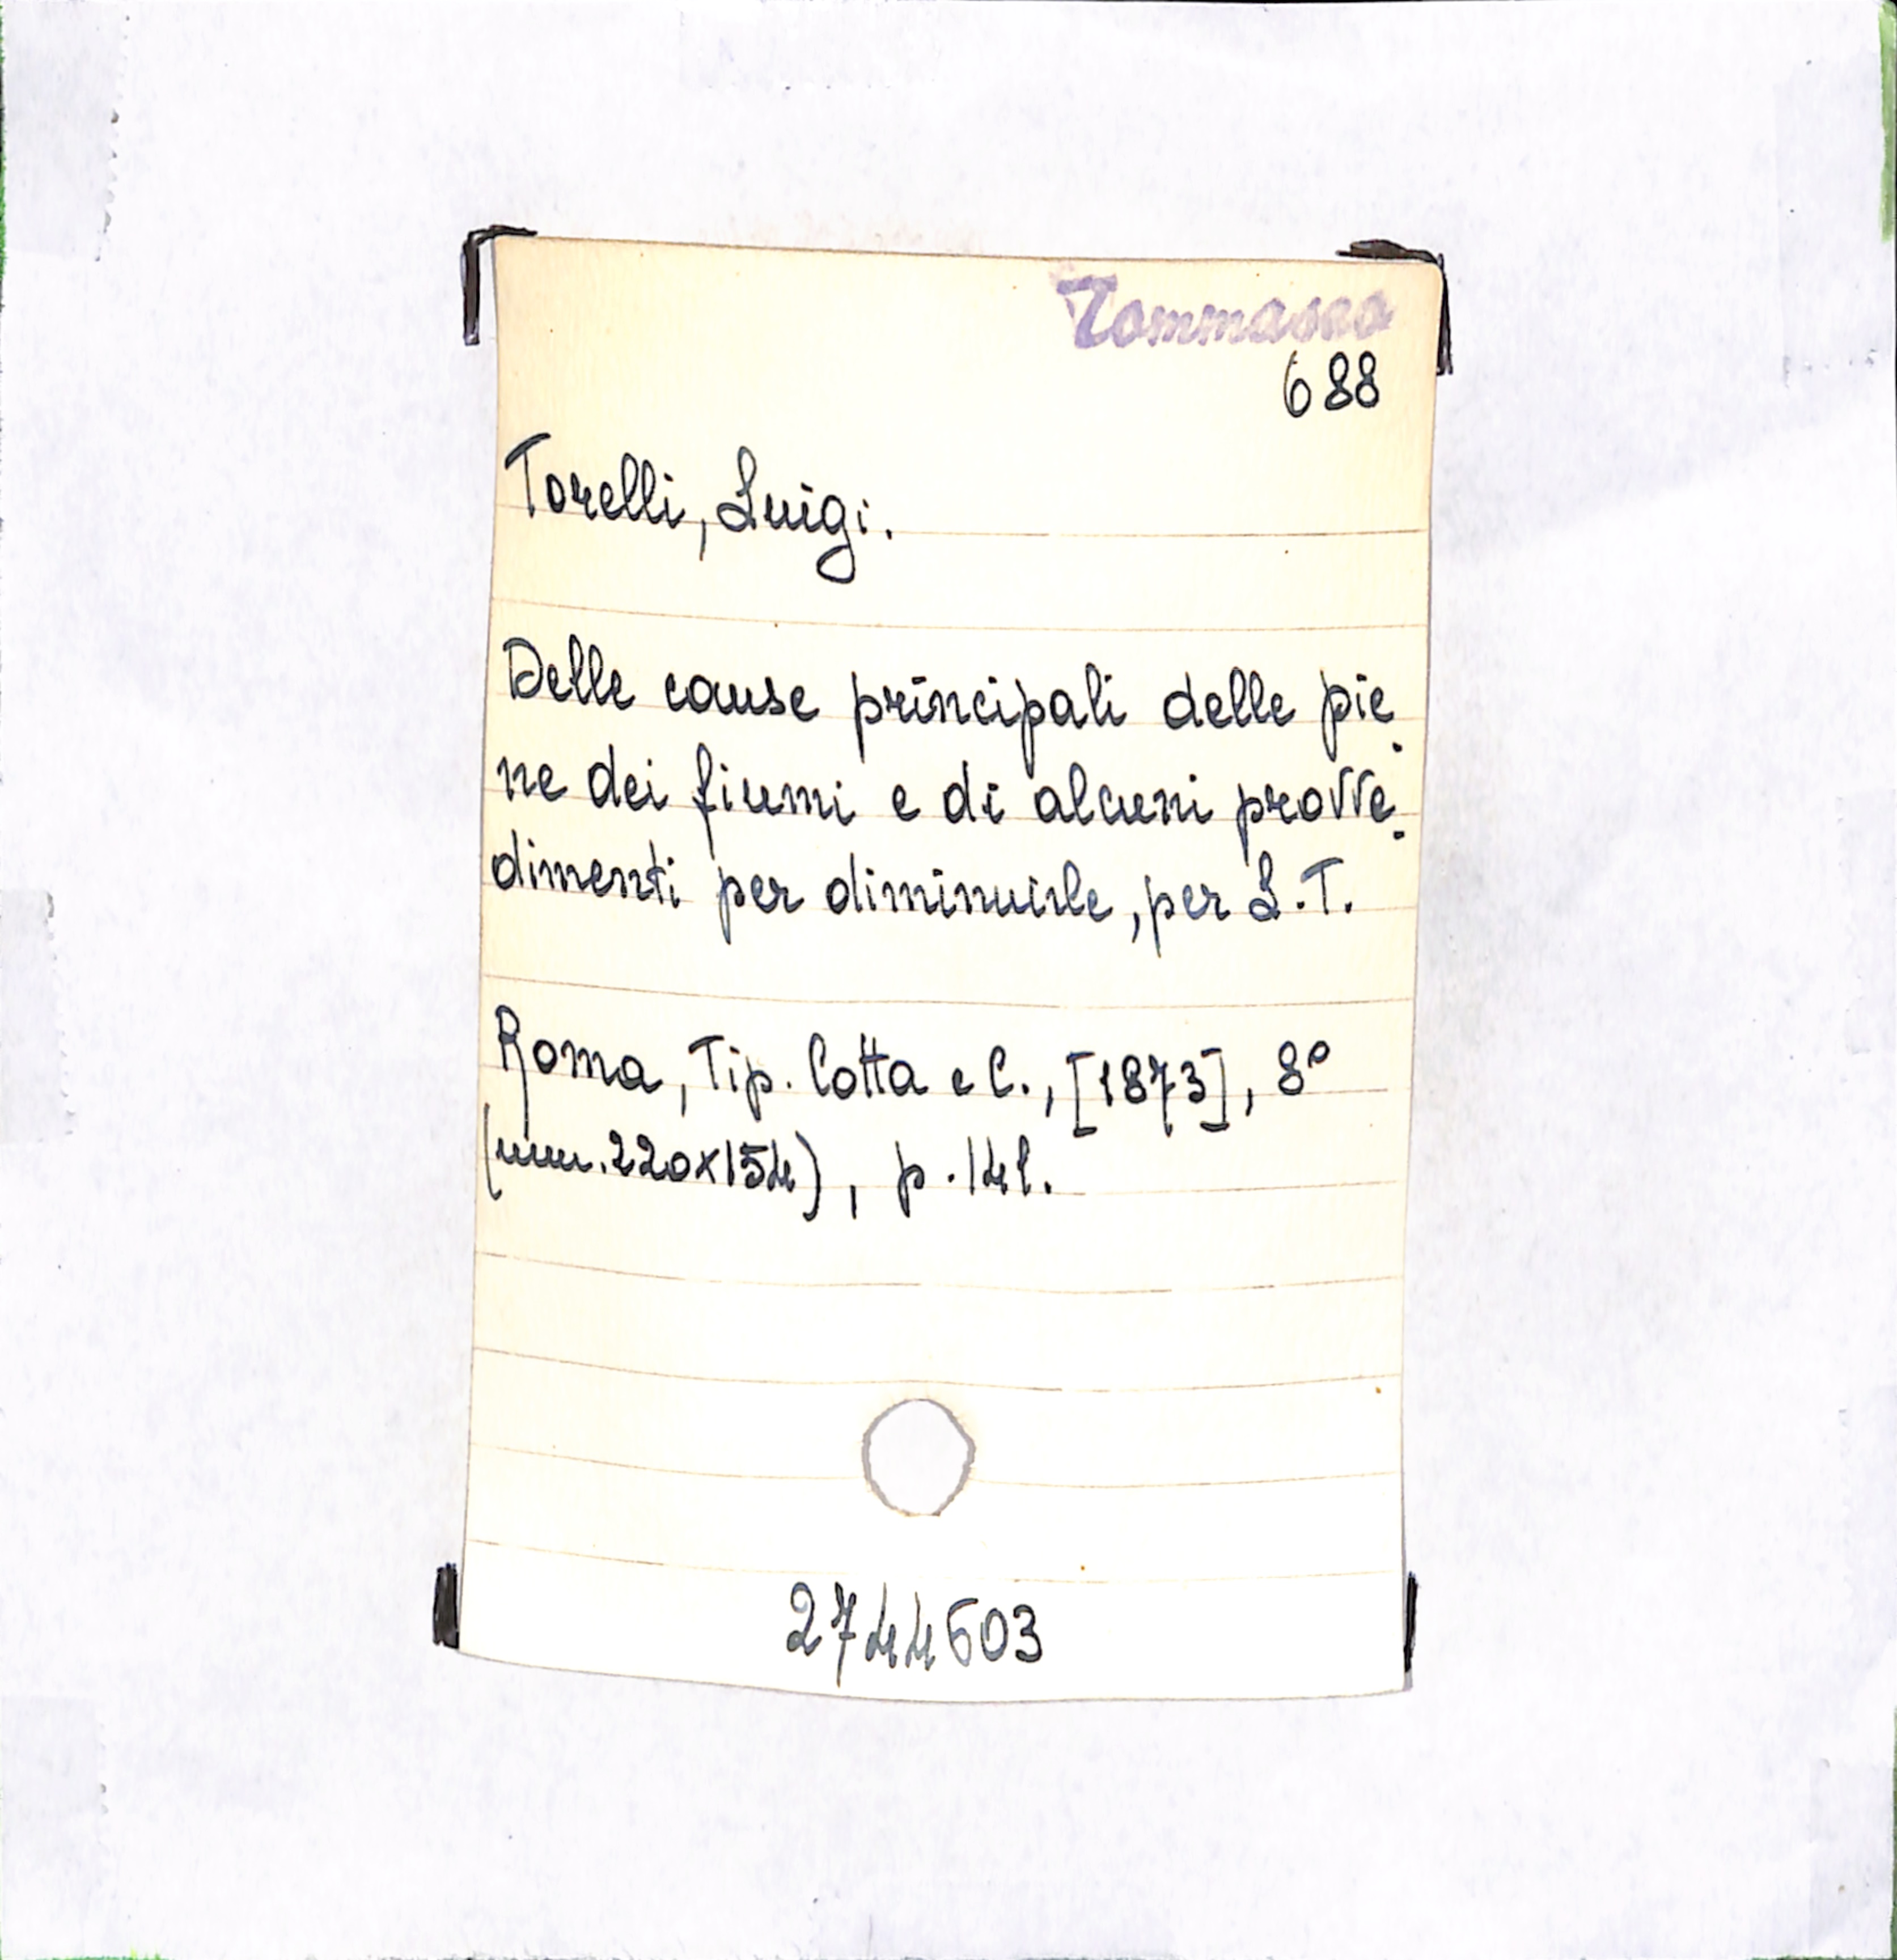 Tommaseo
688
Torelli, Luigi.
Delle cause principali delle pie-
ne dei fiumi e di alcuni provve-
dimenti per diminuirle, per L.T.
Roma, Tip. Cotta e C., [1873], 8°
(mm. 220x154), p. 141.
2744603